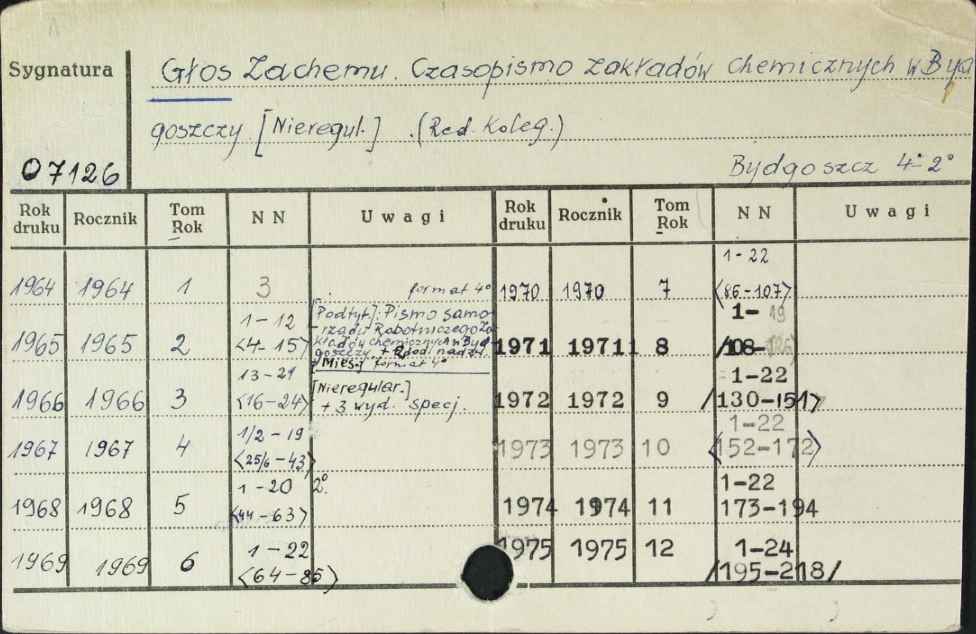 Sygnatura
Głos Zachemu. Czasopismo zakładów chemicznych w Byd
goszczy. [Nieregul.] . (Red. Koleg.)
07126
Bydgoszcz 4°-2°
Rok druku Rocznik Tom Rok NN Uwagi Rok druku Rocznik Tom Rok NN Uwagi
1964 1964 1 3 format 4°
1965 1965 2 1-12 <4-15> [Podtyt]: Pismo samo-
rządu Robotniczego Za-
kładów chemicznych w Byd
goszczy. + 2 dod. nadzw.
Mies. format 4°
1966 1966 3 13-21 <16-24> [Nieregular.]
+ 3 wyd. specj.
1967 1967 4 1/2-19 <25/6-43>
1968 1968 5 1-20 <44-63> 2°.
1969 1969 6 1-22 <64-85>
1970 1970 7 1-22 <86-107>
1971 1971 8 1-19 /108-126
1972 1972 9 1-22 /130-151>
1973 1973 10 1-22 <152-172>
1974 1974 11 1-22 173-194
1975 1975 12 1-24 /195-218/